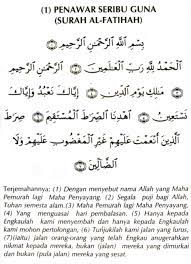 (1) PENAWAR SERIBU GUNA
(SURAH AL-FATIHAH)
بِسْمِ اللَّهِ الرَّحْمَٰنِ الرَّحِيمِ
الْحَمْدُ لِلَّهِ رَبِّ الْعَالَمِينَ الرَّحْمَٰنِ الرَّحِيمِ
مَالِكِ يَوْمِ الدِّينِ إِيَّاكَ نَعْبُدُ وَإِيَّاكَ
نَسْتَعِينُ اهْدِنَا الصِّرَاطَ الْمُسْتَقِيمَ صِرَاطَ
الَّذِينَ أَنْعَمْتَ عَلَيْهِمْ غَيْرِ الْمَغْضُوبِ عَلَيْهِمْ وَلَا
الضَّالِّينَ
Terjemahannya: (1) Dengan menyebut nama Allah yang Maha
Pemurah lagi Maha Penyayang, (2) Segala puji bagi Allah,
Tuhan semesta alam.(3) Maha Pemurah lagi Maha Penyayang.
(4) Yang menguasai hari pembalasan. (5) Hanya kepada
Engkaulah kami menyembah dan hanya kepada Engkaulah
kami mohon pertolongan, (6) Turijukilah kami jalan yang lurus,
(7)(iaitu) jalan orang-orang yang telah Engkau anugerahkan
nikmat kepada mereka, bukan (jalan) mereka yang dimurkai
dan bukan (pula jalan) mereka yang sesat.